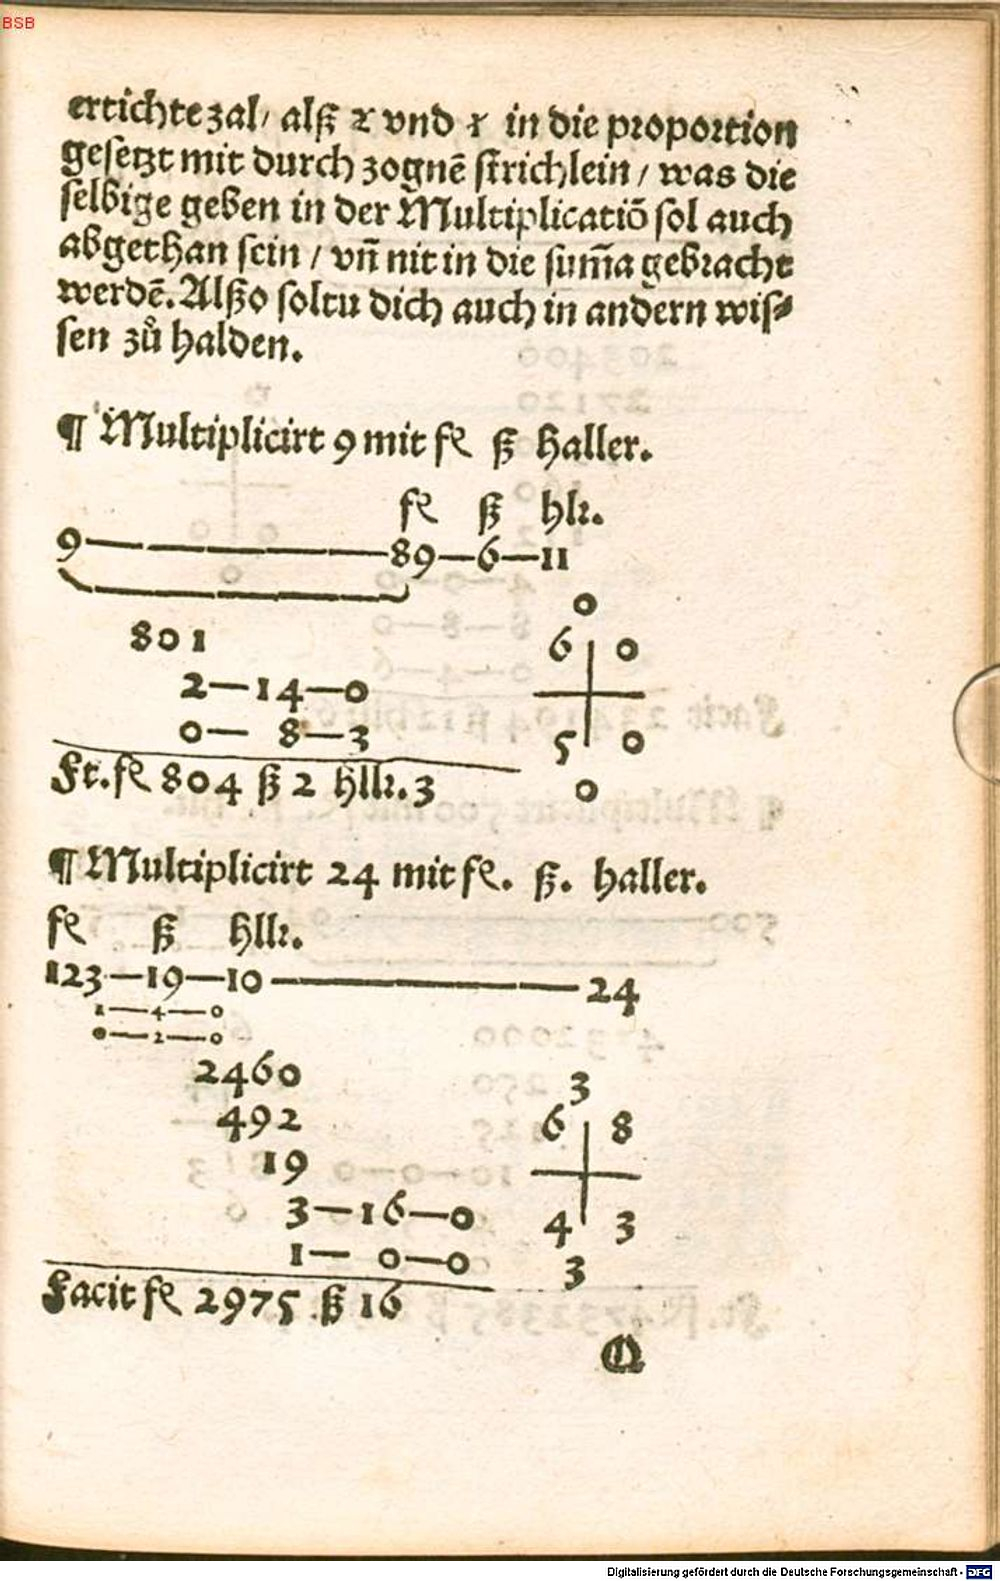 BSB
ertichte zal/ alß 2 vnd 1 in die proportion
gesetzt mit durch zognē strichlein / was die
selbige geben in der Multiplicatiō sol auch
abgethan sein / vn̄ nit in die sum̄a gebracht
werdē. Alßo soltu dich auch in andern wis⸗
sen zů halden.
¶ Multiplicirt 9 mit fl ß Haller.
fl ß hlr.
9 — — — — 89—6—11
0
6 0
801
2—14—0
0— 8—3
5 0
Ft. fl 804 ß 2 hllr. 3
0
¶ Multiplicirt 24 mit fl. ß. haller.
fl ß hllr.
123—19—10 — — — — 24
1—4—0
0—2—0
2460
3
492
6 8
19
3—16—0
4 3
1— 0—0
3
Facit fl 2975 ß 16
Q
Digitalisierung gefördert durch die Deutsche Forschungsgemeinschaft - DFG